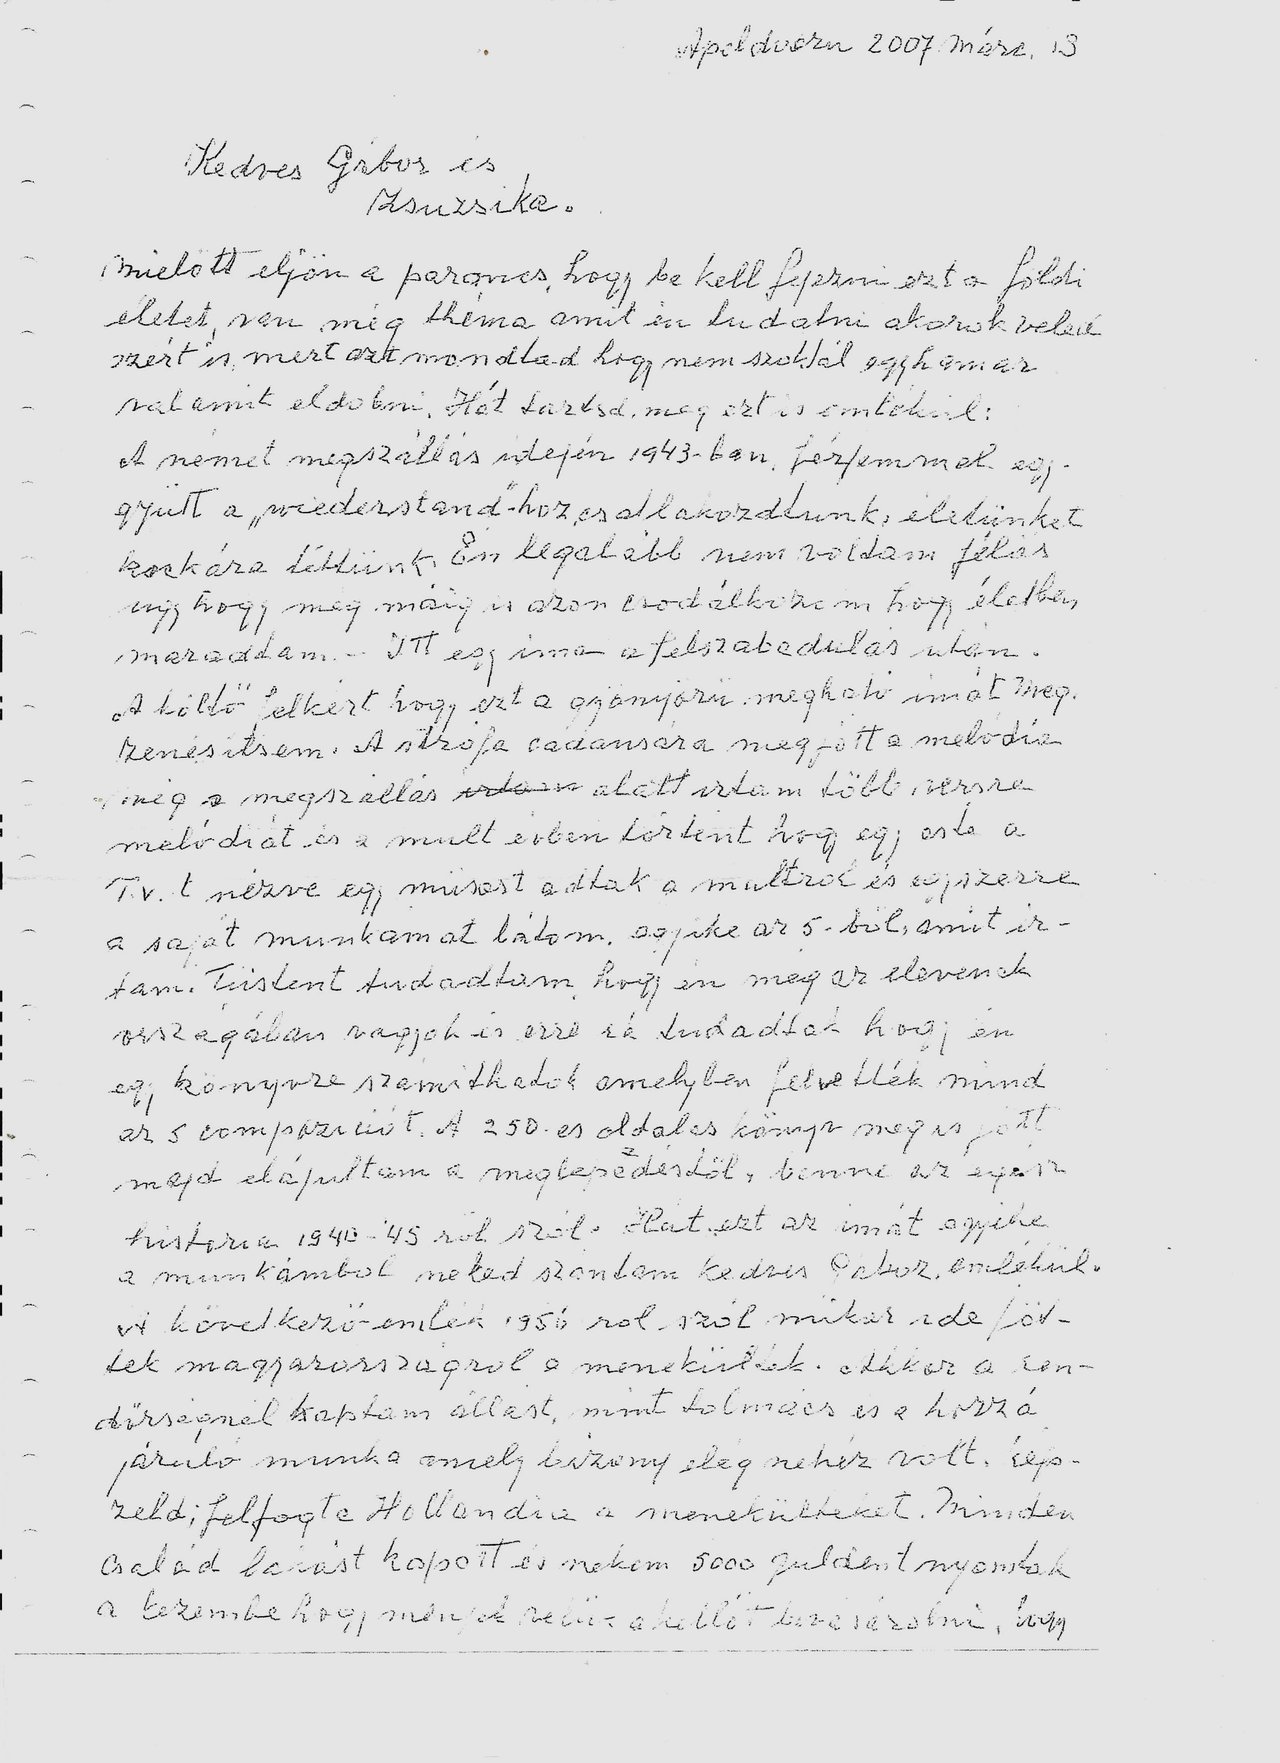 Apeldoorn 2007 Márc. 13
Kedves Gábor és
Zsuzsika.
Mielött eljön a parancs, hogy be kell fejezni ezt a földi
életet, van még théma amit én tudatni akarok veled
azért is, mert azt mondtad hogy nem szoktál egyhamar
valamit eldobni. Hát tartsd meg ezt is emlékül:
A német megszállás idején 1943-ban, férjemmel egy-
gyütt a „wiederstand"-hoz csatlakoztunk, életünket
kockára tettünk. Én legalább nem voltam félős
ugy hogy még máig is azon csodálkozom hogy életben
maradtam. - Itt egy ima a felszabadulás után.
A költő felkért hogy ezt a gyönyörü megható imát meg.
zenésitsem. A strófa cadansára megjött a melódia
még a megszállás irtam alatt irtam több versre
melódiát és a mult évben történt hogy egy este a
T.v. t nézve egy müsort adtak a multrol és egyszerre
a saját munkámat látom. egyike az 5-böl, amit ir-
tam. Tüstent tudadtam hogy én még az elevenek
országában vagyok és erre rá tudadták hogy én
egy könyvre számithatok amelyben felvették mind
az 5 compoziciót. A 250-es oldalas könyv meg is jött
majd elájultam a meglepedéstöl, benne az egész
historia 1940-'45 röl szól. Hát ezt az imát egyike
a munkámbol neked szántam kedves Gábor, emlékül.
A következő emlék 1956 rol szól mikor ide jöt-
tek magyarországrol a menekültek. Akkor a ren-
dörségnél kaptam állást, mint tolmács és a hozzá
járuló munka amely bizony elég nehéz volt. Kép-
zeld; felfogta Hollandia a menekülteket. Minden
család lakást kapott és nekem 5000 guldent nyomtak
a kezembe hogy menjek velük a kellöt bevásárolni, hogy